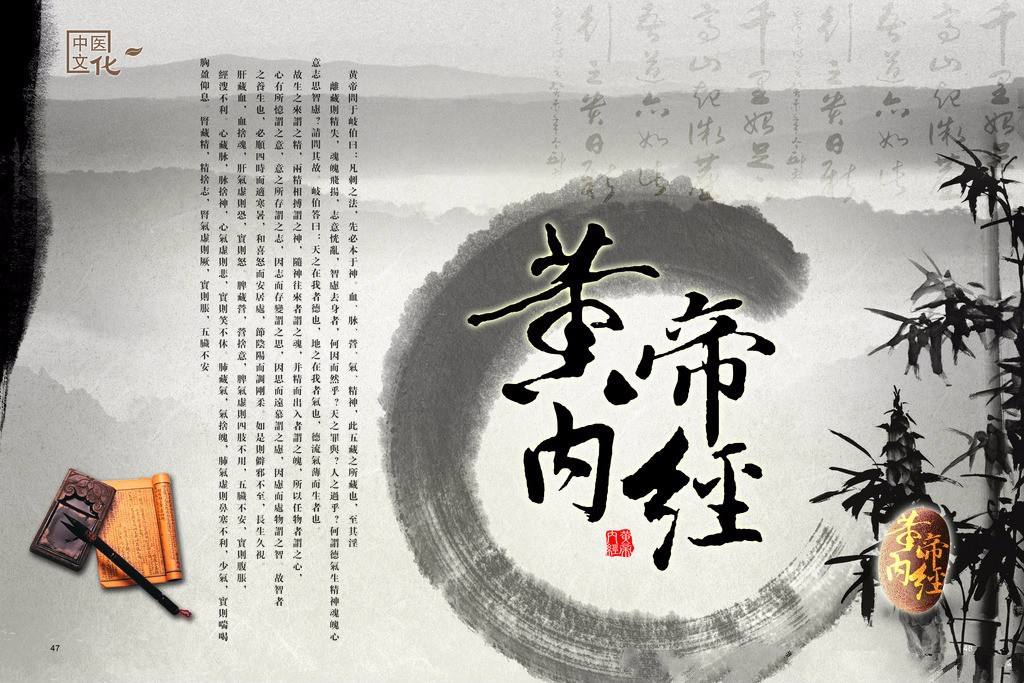 中医
文化
黄帝問于岐伯曰：凡刺之法，先必本于神。血、脉、營、氣、精神，此五藏之所藏也，至其淫
離藏則精失，魂魄飛揚，志意恍亂，智慮去身者，何因而然乎？天之罪與？人之過乎？何謂德氣生精神魂魄心
意志思智慮？請問其故。岐伯答曰：天之在我者德也，地之在我者氣也，德流氣薄而生者也
故生之來謂之精，兩精相搏謂之神，隨神往來者謂之魂，并精而出入者謂之魄，所以任物者謂之心，
心有所憶謂之意，意之所存謂之志，因志而存變謂之思，因思而遠慕謂之慮，因慮而處物謂之智。故智者
之養生也，必順四時而適寒暑，和喜怒而安居處，節陰陽而調剛柔。如是則僻邪不至，長生久視
肝藏血，血捨魂，肝氣虛則恐，實則怒。脾藏營，營捨意，脾氣虛則四肢不用，五臟不安，實則腹脹，
經溲不利。心藏脉，脉捨神，心氣虛則悲，實則笑不休。肺藏氣，氣捨魄，肺氣虛則鼻塞不利，少氣，實則喘喝
胸盈仰息。腎藏精，精捨志，腎氣虛則厥，實則脹，五臟不安
黄帝
内經
黄帝
内經
黄帝
内經
47
48